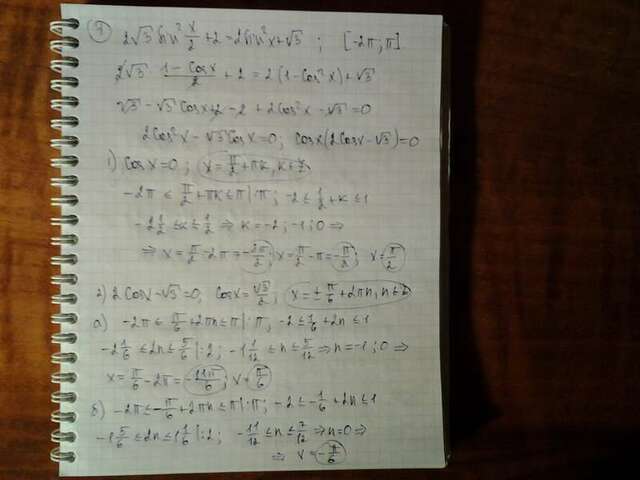 9) 2√3 sin² x/2 + 2 = 2sin²x + √3 ; [-2π; π]
2√3 · (1 - cosx)/2 + 2 = 2(1 - cos²x) + √3
√3 - √3 cosx + 2 - 2 + 2cos²x - √3 = 0
2cos²x - √3 cosx = 0; cosx(2cosx - √3) = 0
1) cosx = 0 ; x = π/2 + πk, k ∈ Z
-2π ≤ π/2 + πk ≤ π | : π ; -2 ≤ 1/2 + k ≤ 1
-2 1/2 ≤ k ≤ 1/2 ⇒ k = -2; -1; 0 ⇒
⇒ x = π/2 - 2π = -3π/2 ; x = π/2 - π = -π/2 ; x = π/2
2) 2cosx - √3 = 0; cosx = √3/2 ; x = ± π/6 + 2πn, n ∈ Z
а) -2π ≤ π/6 + 2πn ≤ π | : π ; -2 ≤ 1/6 + 2n ≤ 1
-2 1/6 ≤ 2n ≤ 5/6 | : 2 ; -1 1/12 ≤ n ≤ 5/12 ⇒ n = -1; 0 ⇒
x = π/6 - 2π = -11π/6 ; x = π/6
б) -2π ≤ -π/6 + 2πn ≤ π | : π ; -2 ≤ -1/6 + 2n ≤ 1
-1 5/6 ≤ 2n ≤ 1 1/6 | : 2 ; -11/12 ≤ n ≤ 7/12 ⇒ n = 0 ⇒
⇒ x = -π/6